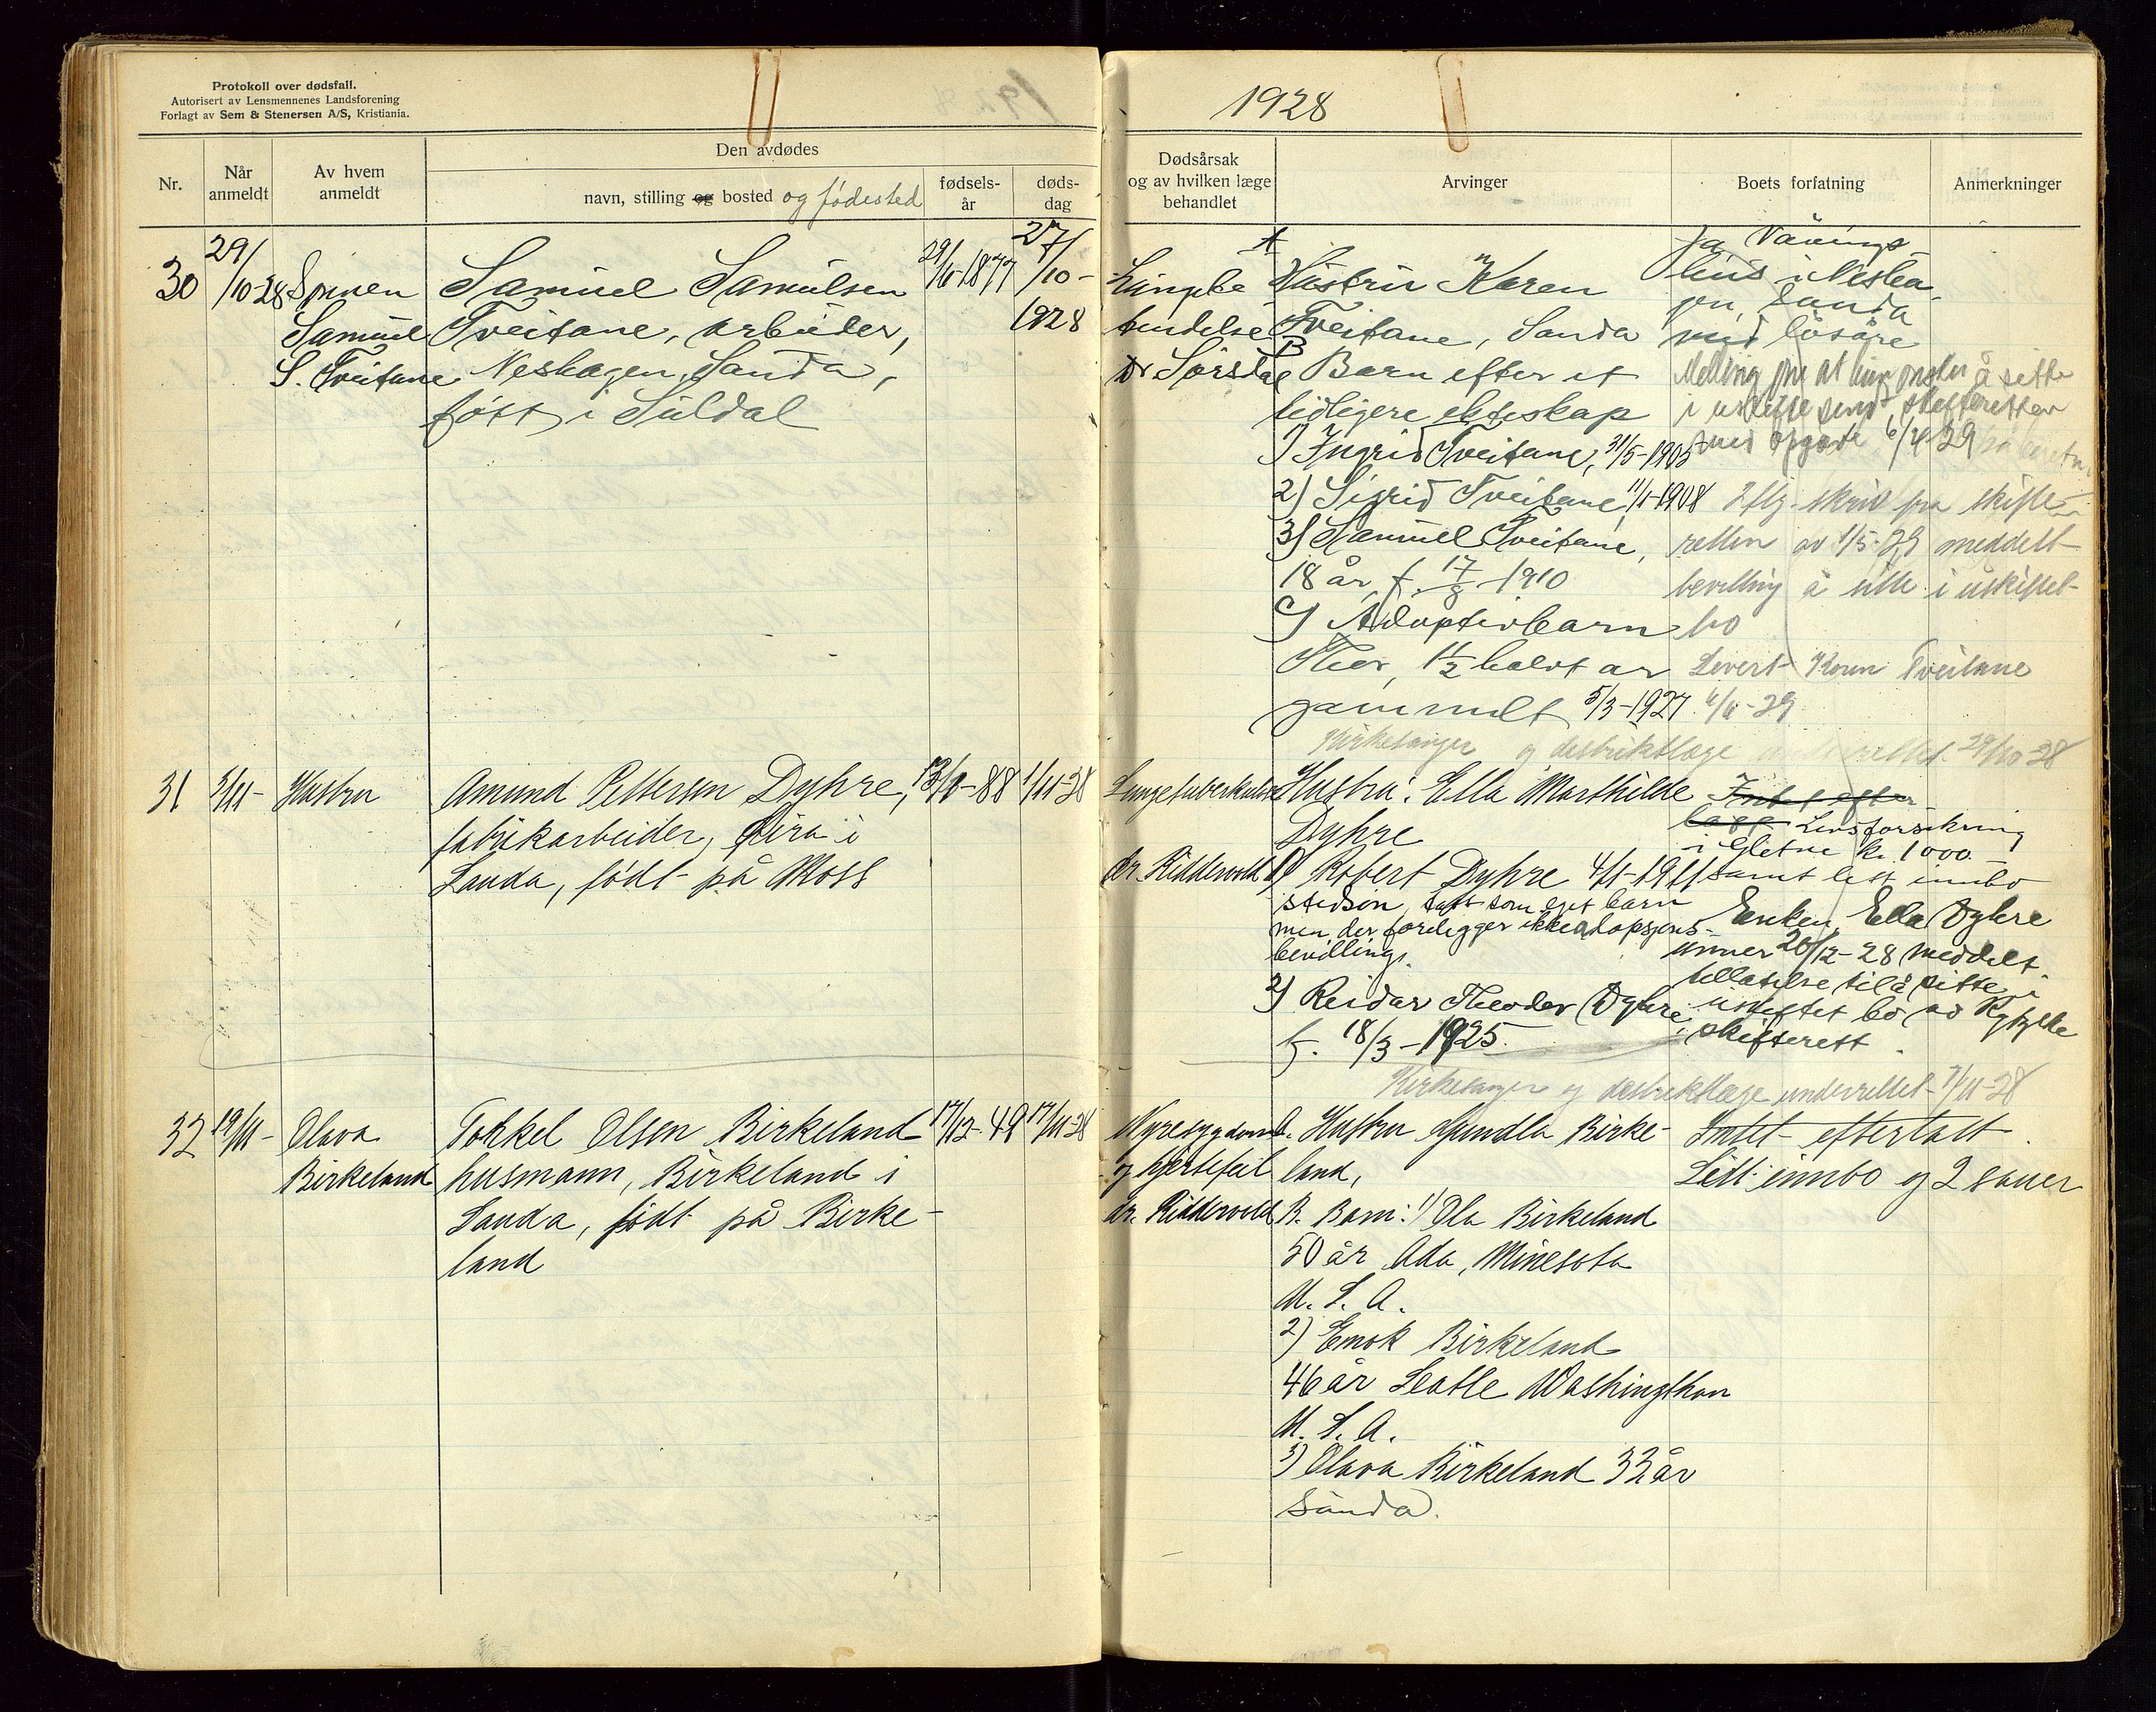 Protokoll over dødsfall.
Autorisert av Lensmennenes Landsforening
Forlagt av Sem & Stenersen A/S, Kristiania.
Nr.
Når anmeldt
Av hvem anmeldt
Den avdødes
navn, stilling og bosted og fødested
fødsels-år
døds-dag
30
29/10-28
Sønnen
Samuel
S. Tveitane
Samuel Samuelsen
Tveitane, arbeider,
Neshagen, Sauda,
født i Suldal
1877
27/10-
1928
31
Hustru
Amund Pettersen Dyhre,
fabrikarbeider, Åbra i
Sauda, født på Moss
1/11-28
32
19/11-
Olava
Birkeland
Tokkel Olsen Birkeland
husmann, Birkeland i
Sauda, født på Birke-
land
17/12-49
17/11-28
1928
Dødsårsak
og av hvilken læge
behandlet
Arvinger
Boets forfatning
Anmerkninger
Lungebe
tendelse
Dr Sørstal
A
Hustru Karen
Tveitane, Sauda
B
Barn efter et
tidligere ekteskap
1) Ingrid Tveitane, 31/5-1905
2) Sigrid Tveitane, 1908
3) Samuel Tveitane,
18 år, f. 17/8-1910
C) Adoptivbarn
Thor, 1 1/2 halvt år
gammelt 5/3-1927
Ja Vånings
hus i Neshagen,
Sauda
med løsøre
Melding om at hun ønsker å sitte
i uskifte sendt skifteretten
med opgave 6/4 29
Iflg. skriv fra skifte-
retten av 1/5-29 meddelt
bevilling å sitte i uskiftet
bo
Levert Karen Tveitane
Kirkesanger og distriktslæge underrettet 29/10 28
Lungetuberkulose
dr. Ridderwold
Hustru: Ella Marthilde
Dyhre
1) Robert Dyhre 4/1-1911
stedsøn, tatt som eget barn
men der foreligger ikke adopsjons-
bevilling.
2) Reidar Theodor Dyhre
f. 18/3-1925.
Intet efter
latt Livsforsikring
i Gletne kr. 1000.-
samt litt innbo
Enken, Ella Dyhre
under 20/12-28 meddelt
tillatelse til å sitte i
uskiftet bo av Ryfylke
skifterett.
Kirkesanger og distriktslæge underrettet 7/11-28
Nyresygdom
og hjertefeil
dr. Ridderwold
A. Hustru Gundla Birke-
land,
B. Barn: 1) Ola Birkeland
50 år Ada, Minesota
U. S. A.
2) Enok Birkeland
46 år Seatle Washingthon
U. S. A.
3) Olava Birkeland 33 år
Sauda.
Intet efterlatt.
Litt innbo og 2 sauer